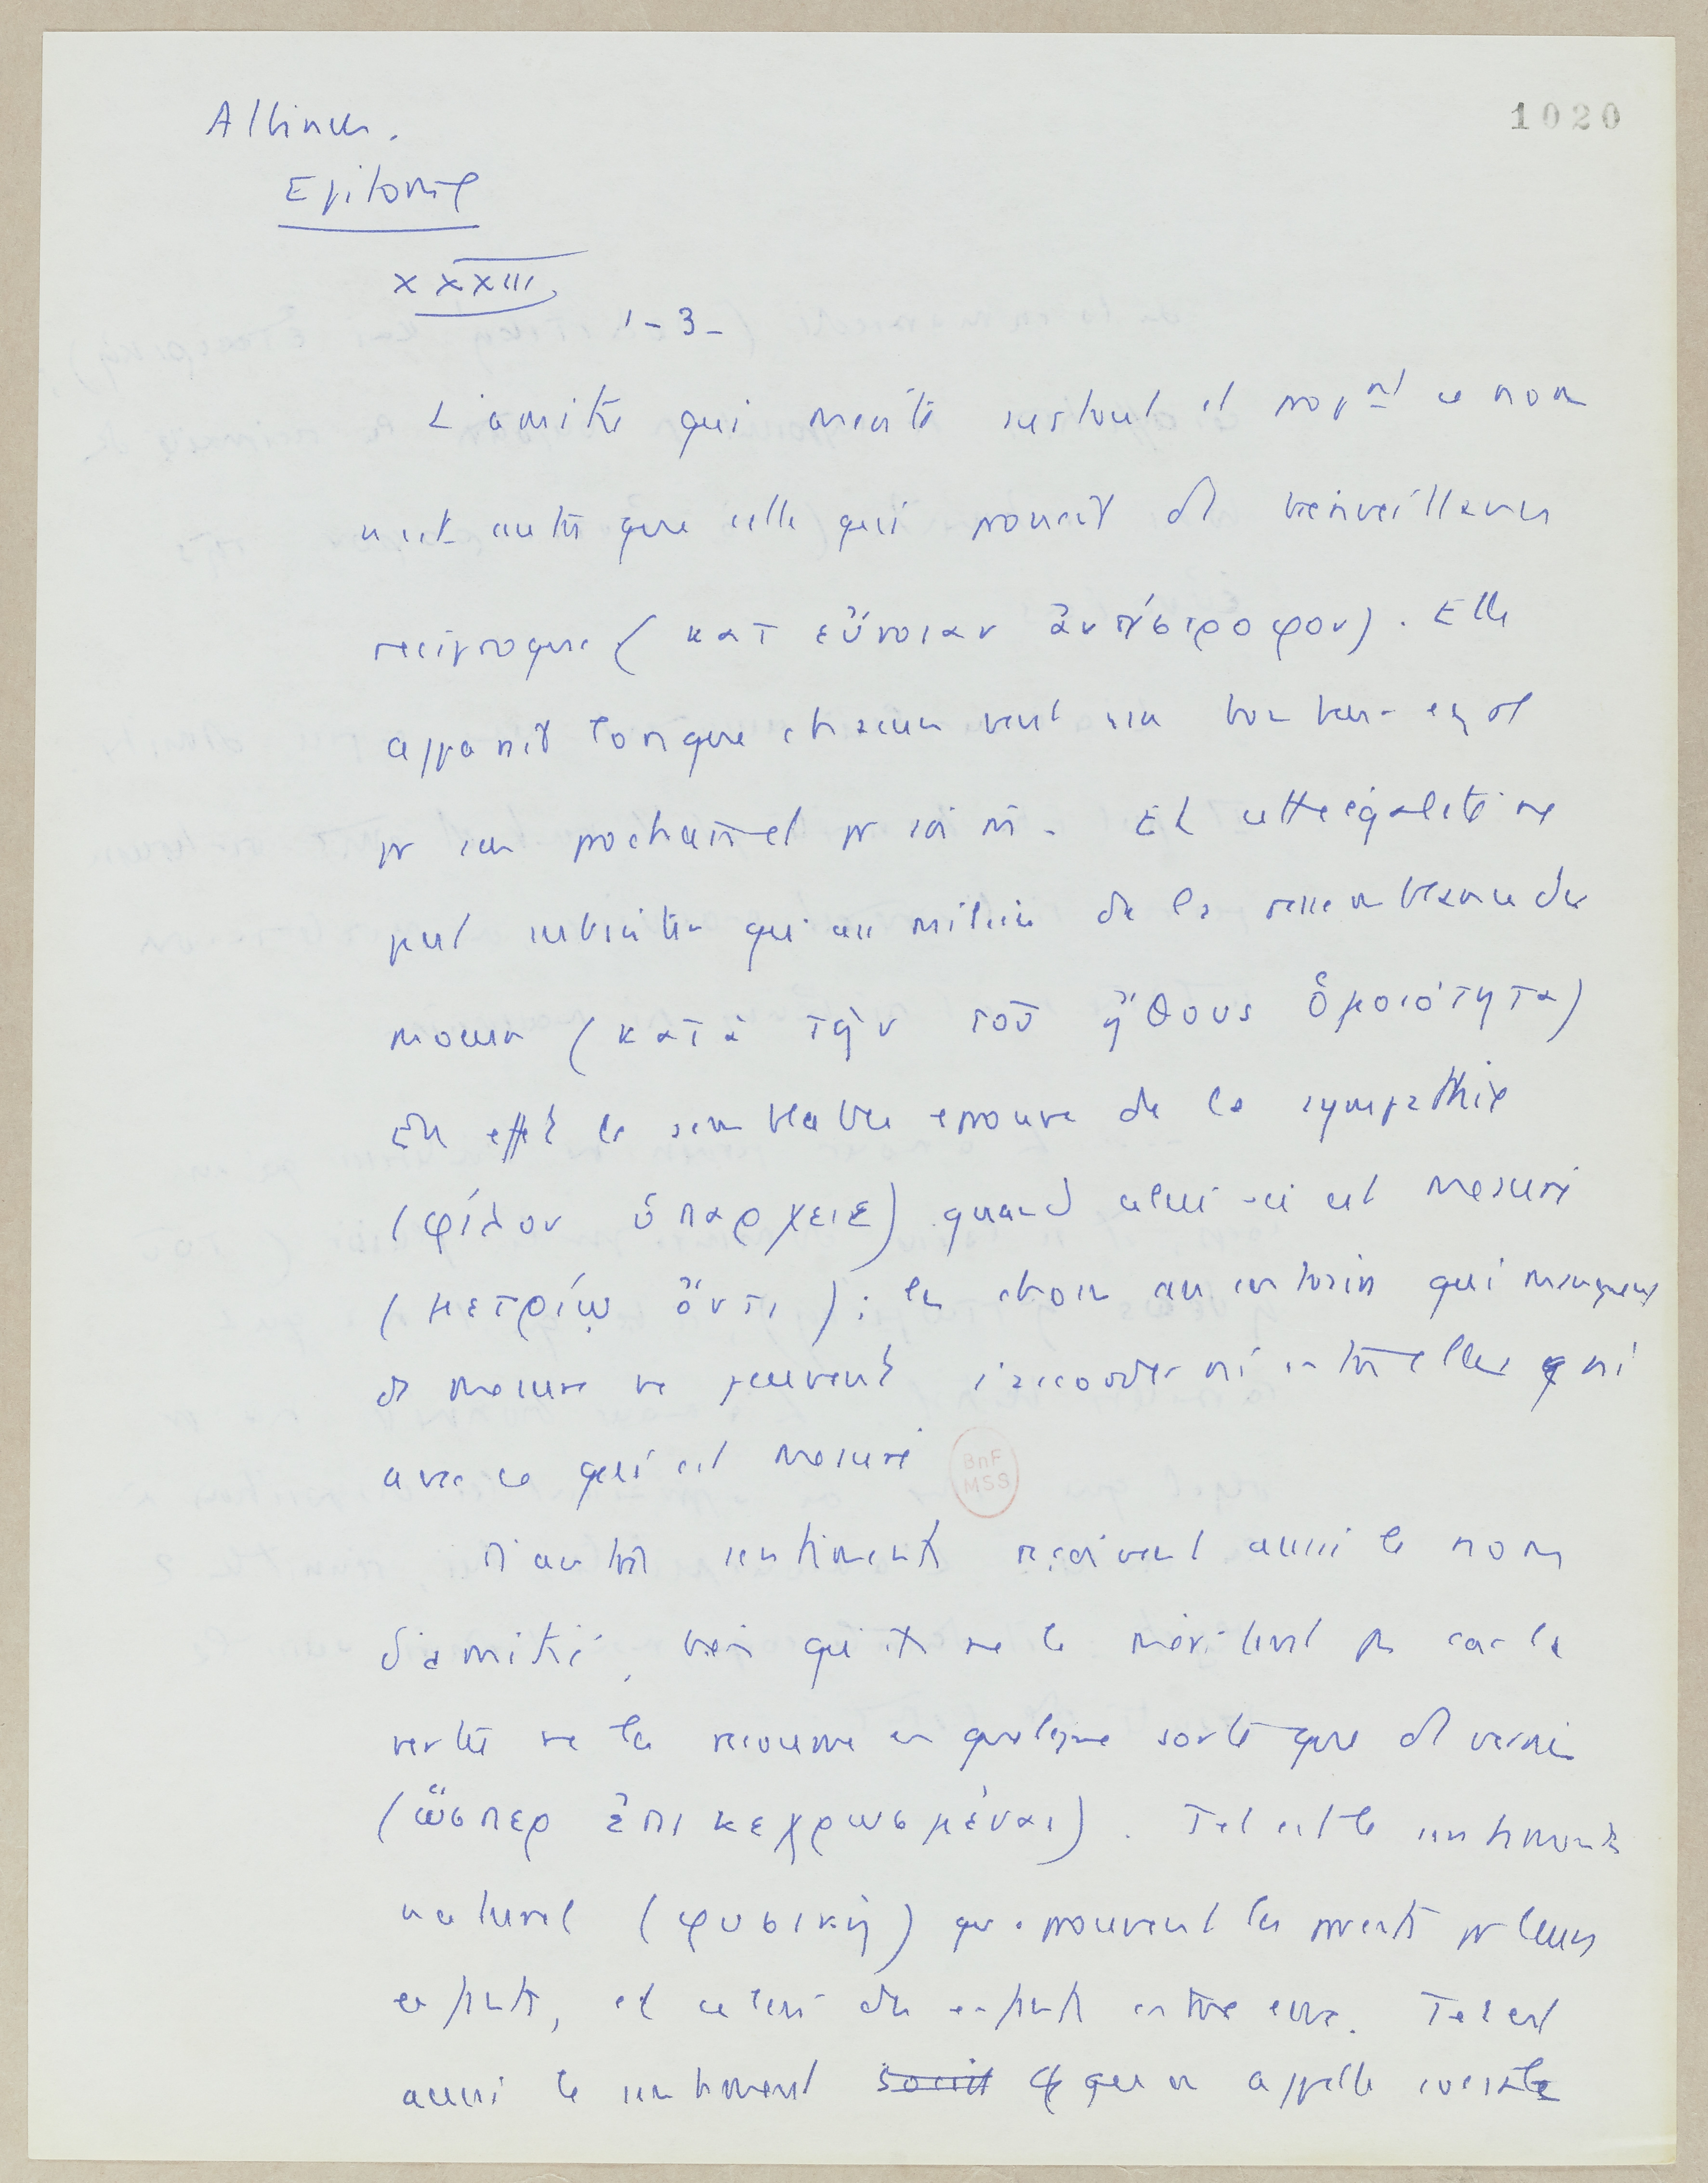 Albinus.
1020
Epitomé
XXXIII
1-3-
L'amitié qui mérite surtout et propnt ce nom
n'est autre que celle qui nourrit de bienveillance
réciproque (κατ εὔνοιαν ἀντίστροφον). Elle
apparaît lorsque chacun veut
pr son prochain et pr soi m. Et cette égalité ne
peut subsister qu'au milieu de la ressemblance des
moeurs (κατὰ τὴν τοῦ ἤθους ὁμοιότητα)
En effet le semblable éprouve de la sympathie
(φίλον ὑπαρχειε) quand celui-ci est mesuré
(μετρίῳ ὄντι); les choses au contraire qui manquent
de mesure ne peuvent s'accorder ni entre elles ni
avec ce qui est mesuré
BnF
MSS
D'autres sentiments reçoivent aussi le nom
d'amitié, bien qu'ils ne le méritent ps car la
vertu ne les recouvre en quelque sorte que de vernis
(ὥσπερ ἐπικεχρωσμέναι). Tel est le sentiment
naturel (φυσικὴ) qu'éprouvent les parents pr leurs
enfants, et celui des enfants entre eux. Tel est
aussi le sentiment qu'on appelle sociale